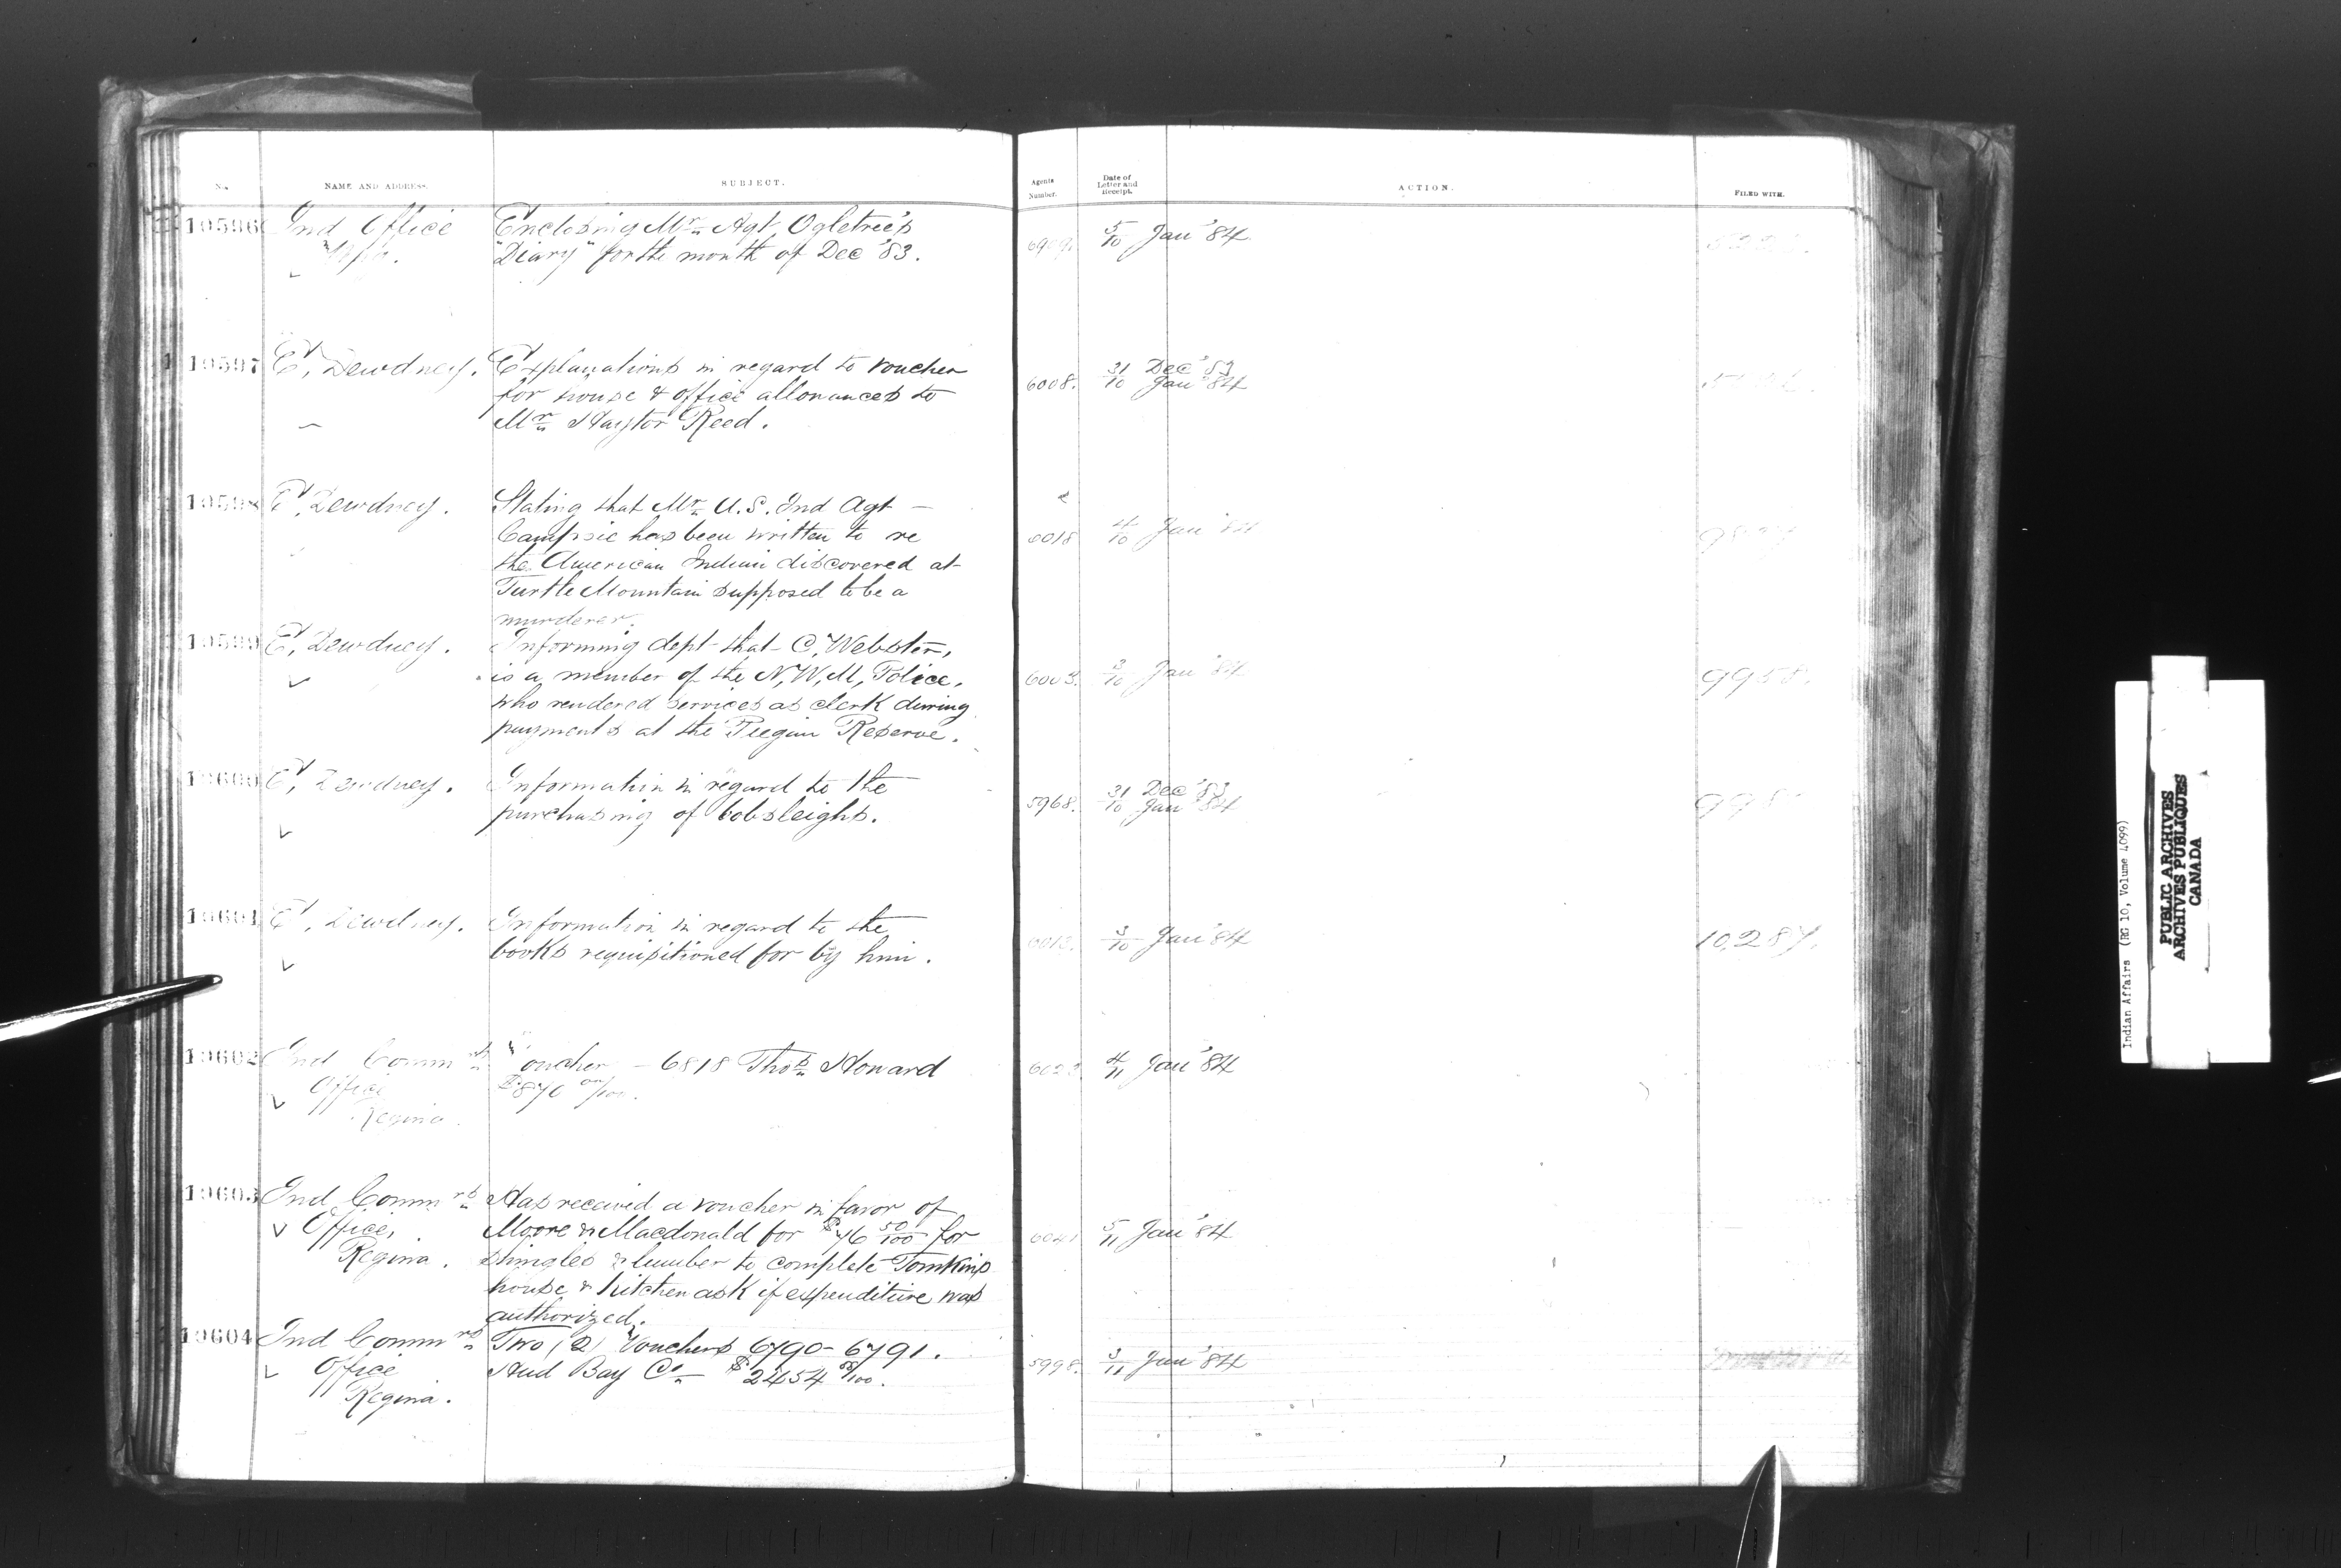 No. NAME AND ADDRESS. SUBJECT. Agents Number. Date of Letter and Receipt. ACTION. FILED WITH.
10596 Ind Office Enclosing Mr Agt Ogletree's 5/10 Jan '84
"Diary" for the month of Dec '83.
10597 E, Dewdney. Explanations in regard to voucher 6008. 31/10 Dec '83 Jan '84
for house & office allowances to
Mr Haytor Reed.
10598 E, Dewdney. Stating that Mr U.S. Ind Agt 6018 4/10 Jan '84
has been written to re
the American Indian discovered at
Turtle Mountain supposed to be a
murderer.
10599 E, Dewdney. Informing dept that C, Webster, 6003. 3/10 Jan '84 9958.
is a member of the N, W, M, Police,
who rendered services as clerk during
payments at the Piegan Reserve.
10600 E, Dewdney. Information in regard to the 5968. 31/10 Dec '83 Jan '84
purchasing of bobsleighs.
10601 E, Dewdney. Information in regard to the 3/10 Jan '84 10,287.
books requisitioned for by him.
10602 Ind Commrs Voucher – 6818 Thos Howard 4/11 Jan '84
Office
Regina.
10603 Ind Commrs Has received a voucher in favor of 6041 5/11 Jan '84
Office, Moore & Macdonald for $76 50/100 for
Regina. shingles & lumber to complete Tomkins
house & kitchen ask if expenditure was
authorized.
10604 Ind Commrs Two (2) Vouchers 6790 - 6791. 5998. 3/11 Jan '84
Office Hud Bay Co $2454
Regina.
Indian Affairs (RG 10, Volume 4099)
PUBLIC ARCHIVES
ARCHIVES PUBLIQUES
CANADA